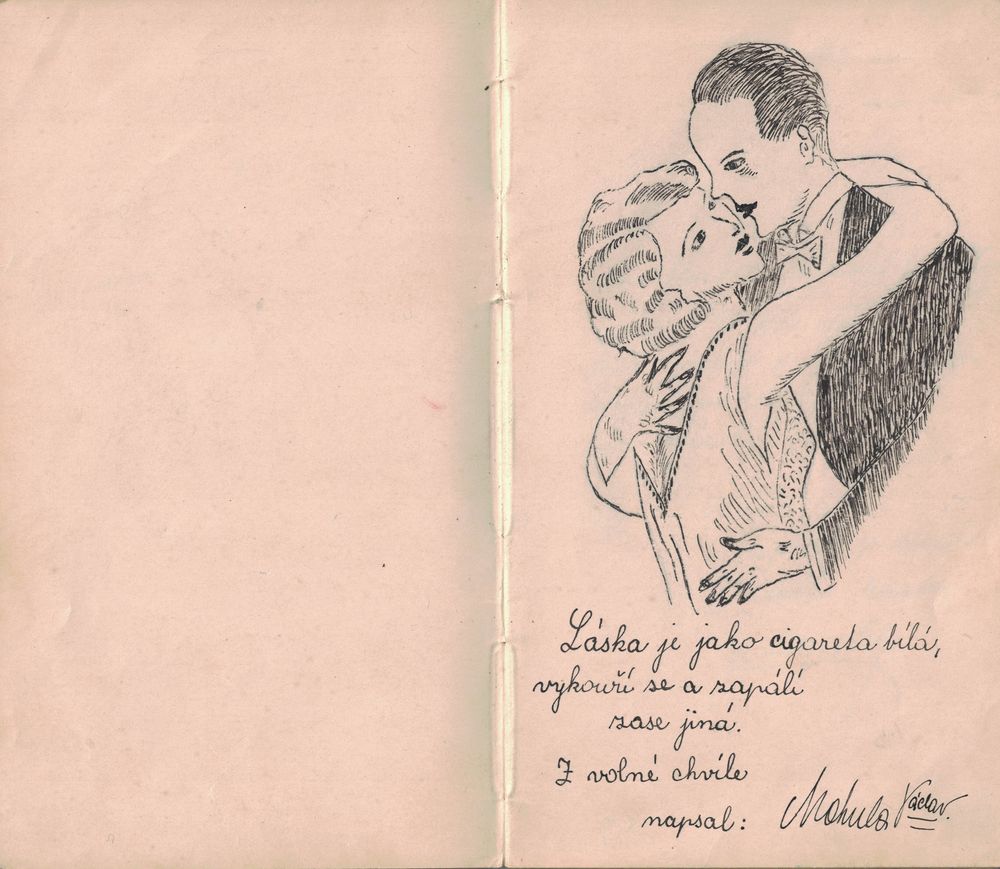 Láska je jako cigareta bílá,
vykouří se a zapálí
zase jiná.
Z volné chvíle
napsal: Mokula Václav.